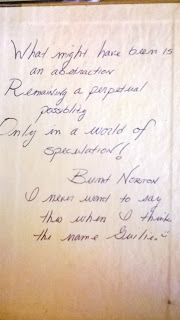 What might have been is
an abstraction
Remaining a perpetual
possibility
Only in a world of
speculation!
Burnt Norton
I never want to say
this when I think
the name